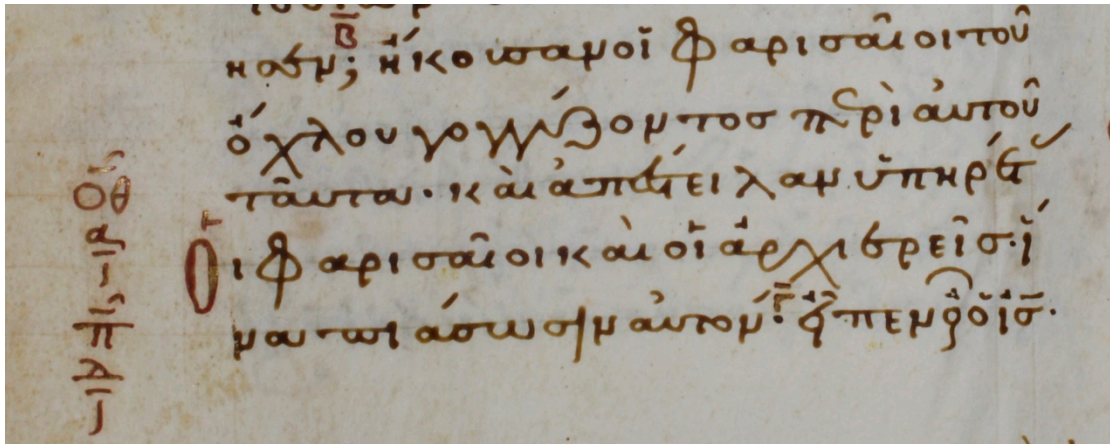 ησεν; ἤκουσαν οἱ Φαρισαῖοι τοῦ
ὄχλου γογγύζοντος περὶ αὐτοῦ
ταῦτα· καὶ ἀπέστειλαν ὑπηρέτ
Οἱ Φαρισαῖοι καὶ οἱ ἀρχιερεῖς· ἵ
να πιάσωσιν αὐτόν· εἶπεν οὖν ὁ ις·